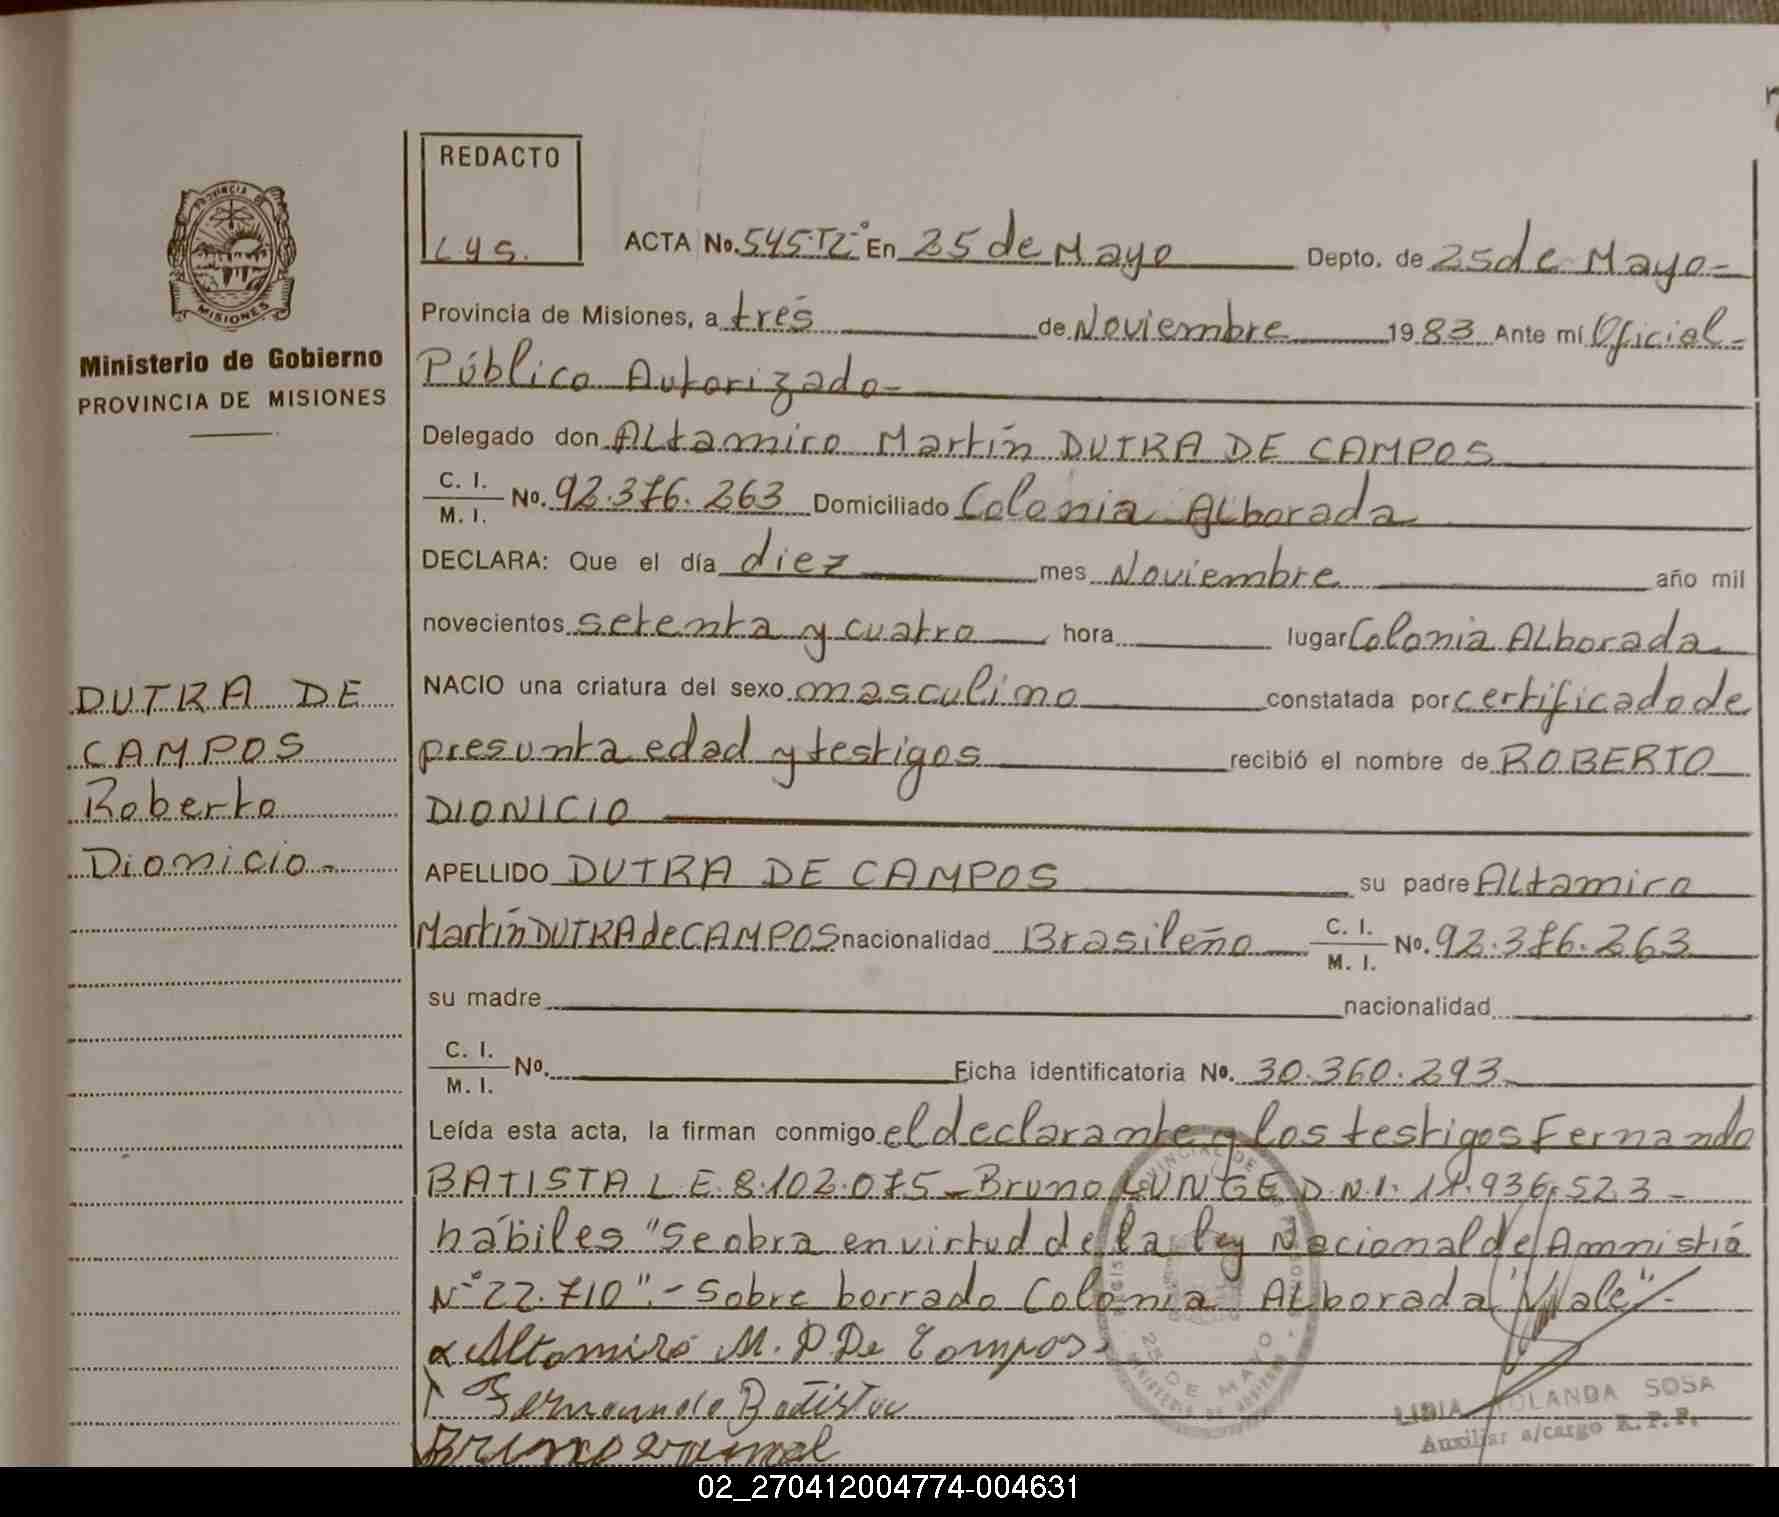 REDACTO
Lys.
PROVINCIA DE
MISIONES
Ministerio de Gobierno
PROVINCIA DE MISIONES
DUTRA DE
CAMPOS
Roberto
Dionicio.-
ACTA No. 545-T2-° En 25 de Mayo Depto. de 25 de Mayo-
Provincia de Misiones, a tres de Noviembre 1983 Ante mí Oficial-
Público Autorizado-
Delegado don Altamiro Martín DUTRA DE CAMPOS
C. I. / M. I. No. 92.376.263 Domiciliado Colonia Alborada
DECLARA: Que el día diez mes Noviembre año mil
novecientos setenta y cuatro hora lugar Colonia Alborada
NACIO una criatura del sexo masculino constatada por certificado de
presunta edad y testigos recibió el nombre de ROBERTO
DIONICIO
APELLIDO DUTRA DE CAMPOS su padre Altamiro
Martín DUTRA de CAMPOS nacionalidad Brasileño C. I. / M. I. No. 92.376.263
su madre nacionalidad
C. I. / M. I. No. Ficha identificatoria No. 30.360.293
Leída esta acta, la firman conmigo el declarante y los testigos Fernando
BATISTA L.E. 8.102.075- Bruno D.N.I. 936.523-
hábiles "Se obra en virtud de la ley Nacional de Amnistiá
N°22.710".- Sobre borrado Colonia Alborada "Vale"-
Altomiro M. D. De Compos
Fernando Batista
Bruno
25 DE MAYO
LIDIA YOLANDA SOSA
Auxiliar a/cargo R.P.P.
02_270412004774-004631